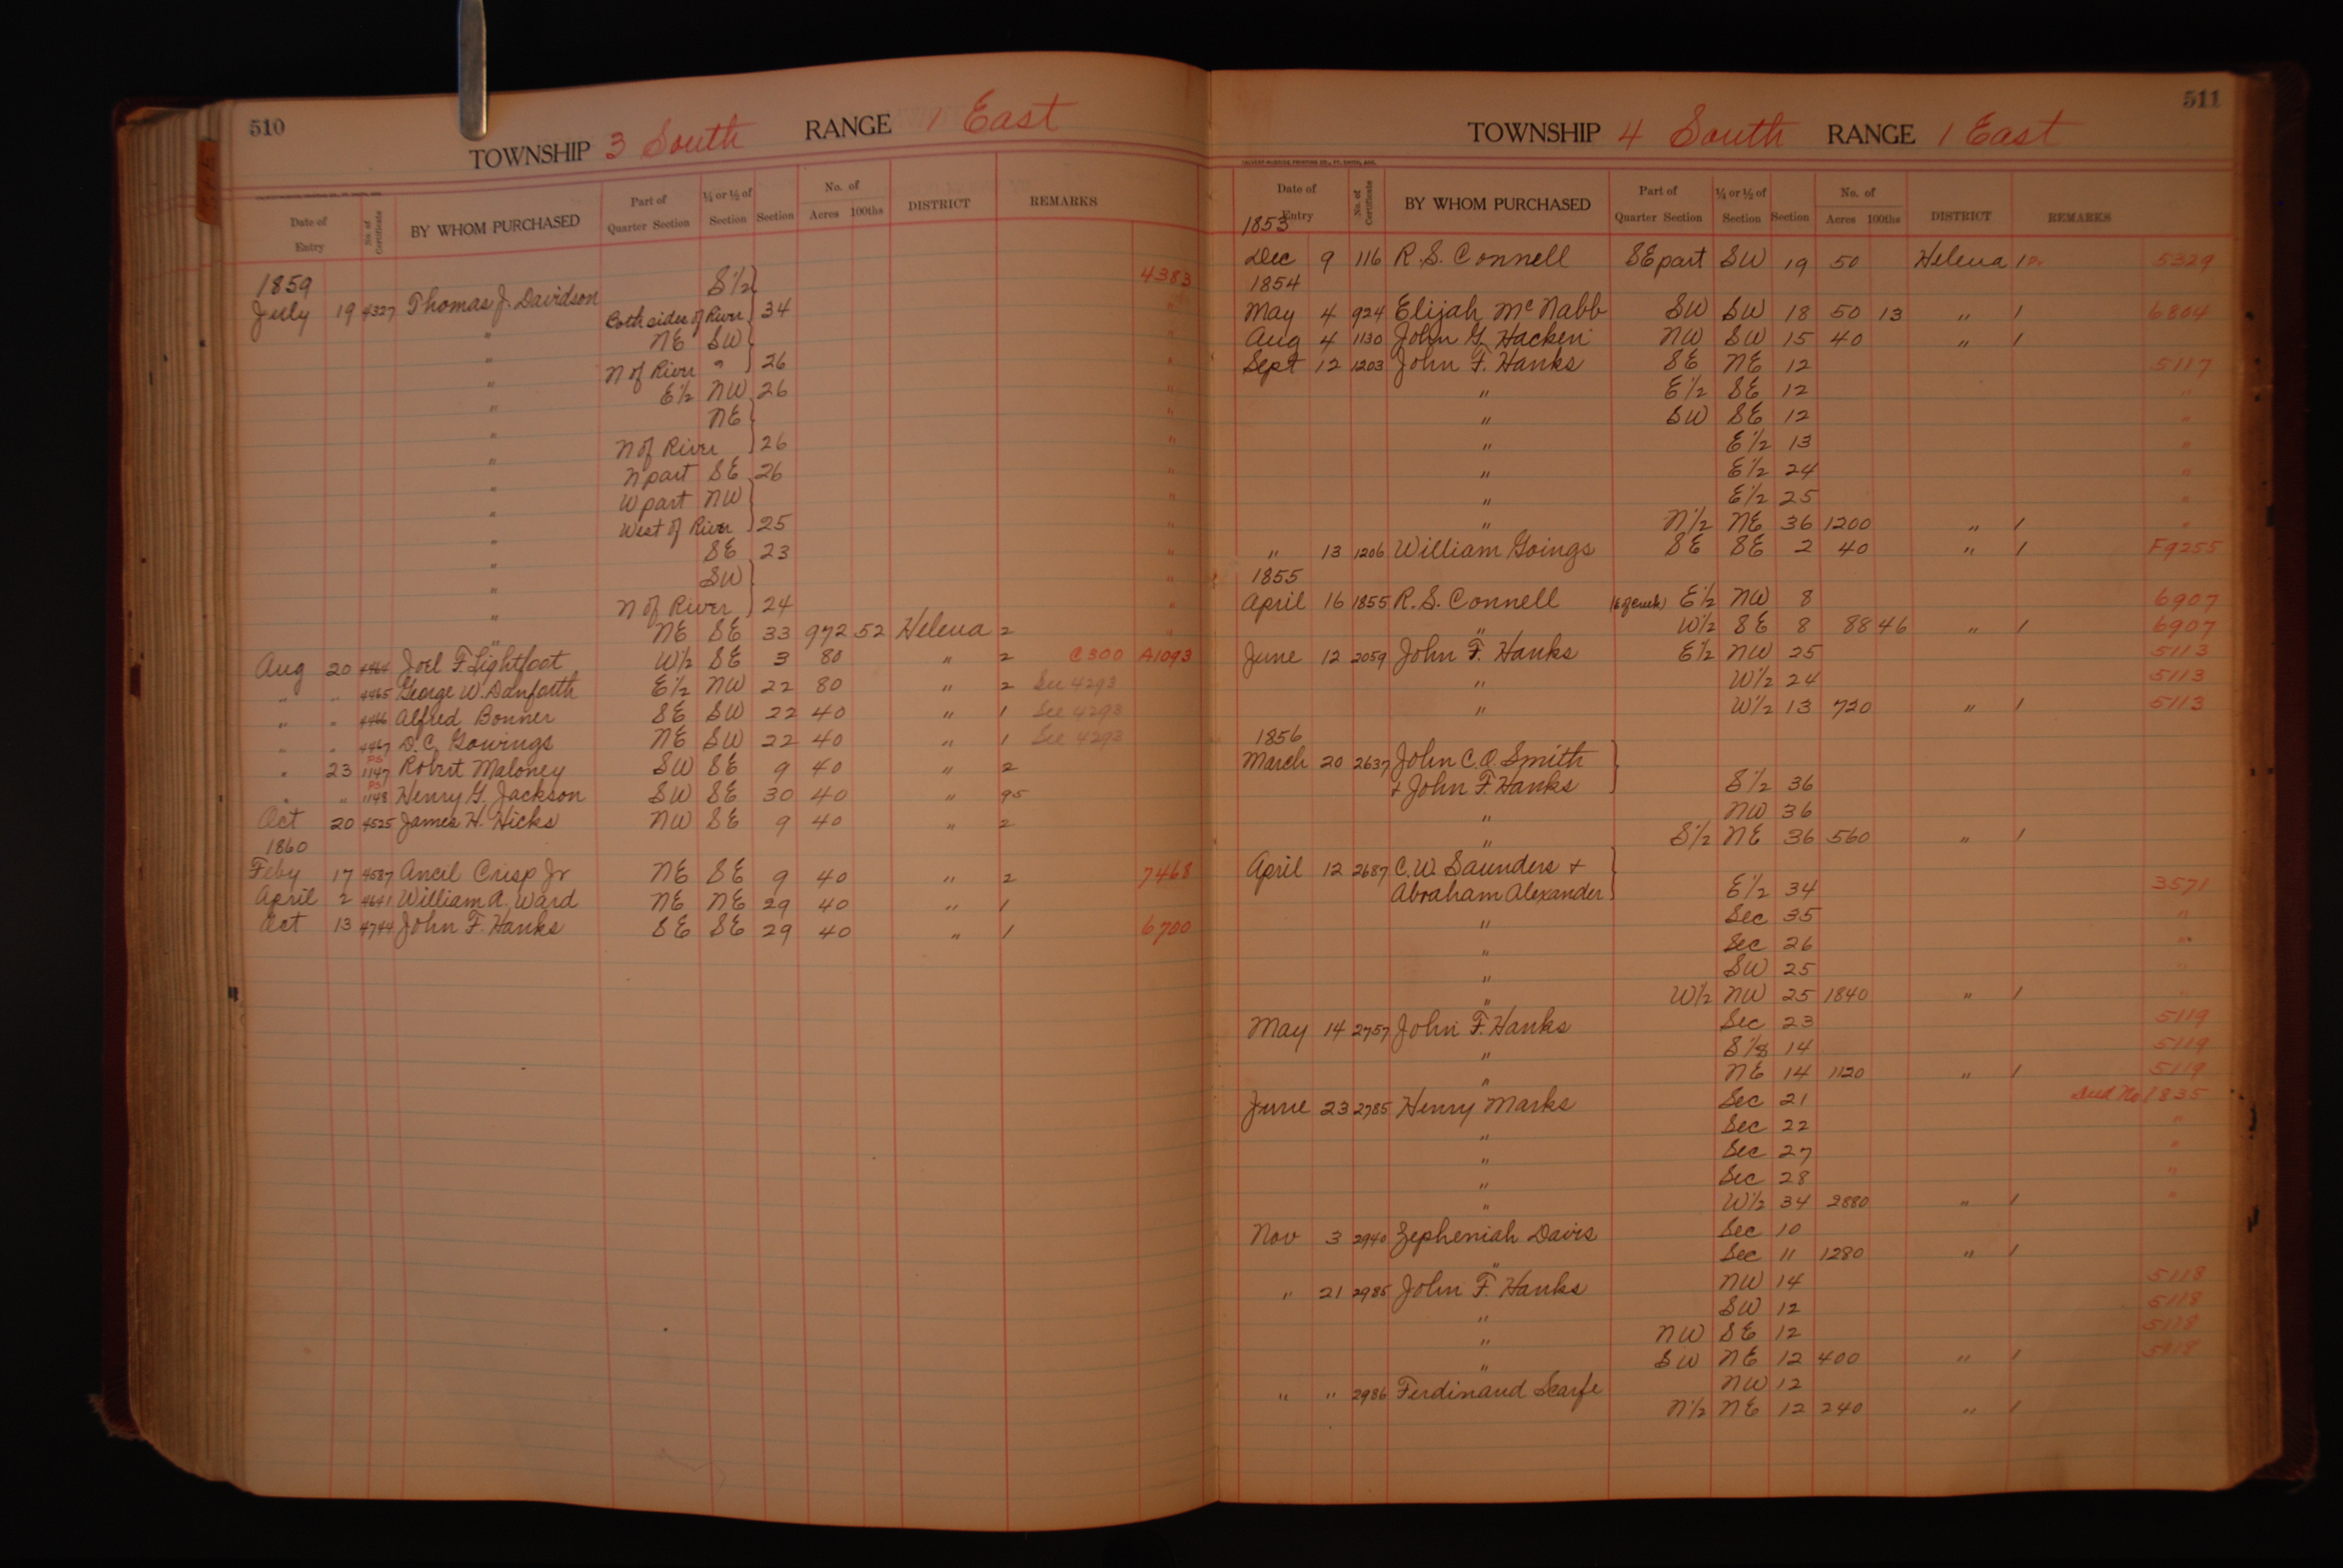 510
TOWNSHIP 3 South RANGE 1 East
Date of Entry No. of Certificate BY WHOM PURCHASED Part of Quarter Section ¼ or ½ of Section Section No. of Acres 100ths DISTRICT REMARKS
1859 S½ 4383
July 19 4327 Thomas J. Davidson both sides of River } 34 "
" NE SW "
" N of River " } 26 "
" E½ NW 26 "
" NE "
" N of River } 26 "
" N part SE 26 "
" W part NW "
" West of River } 25 "
" SE 23 "
" SW "
" N of River } 24 "
" NE SE 33 972 52 Helena 2 "
Aug 20 4464 Joel F. Lightfoot W½ SE 3 80 " 2 C300 A1093
" " 4465 George W. Danforth E½ NW 22 80 " 2 See 4293
" " 4466 Alfred Bonner SE SW 22 40 " 1 See 4293
" " 4467 D. C. Gowings NE SW 22 40 " 1 See 4293
" 23 PS 1147 Robert Maloney SW SE 9 40 " 2
" " PS 1148 Henry G. Jackson SW SE 30 40 " 95
Oct 20 4525 James H. Hicks NW SE 9 40 " 2
1860
Feby 17 4587 Ancil Crisp Jr NE SE 9 40 " 2 7468
April 2 4641 William A. Ward NE NE 29 40 " 1
Oct 13 4744 John F. Hanks SE SE 29 40 " 1 6700
511
TOWNSHIP 4 South RANGE 1 East
Date of Entry No. of Certificate BY WHOM PURCHASED Part of Quarter Section ¼ or ½ of Section Section No. of Acres 100ths DISTRICT REMARKS
1853
Dec 9 116 R. S. Connell SE part SW 19 50 Helena 1 5329
1854
May 4 924 Elijah McNabb SW SW 18 50 13 " 1 6804
Aug 4 1130 John G. Hacken NW SW 15 40 " 1
Sept 12 1203 John F. Hanks SE NE 12 5117
" E½ SE 12 "
" SW SE 12 "
" E½ 13 "
" E½ 24 "
" E½ 25 "
" N½ NE 36 1200 " 1 "
" 13 1206 William Goings SE SE 2 40 " 1 F9255
1855
April 16 1855 R. S. Connell (E of Creek) E½ NW 8 6907
" W½ SE 8 88 46 " 1 6907
June 12 2059 John F. Hanks E½ NW 25 5113
" W½ 24 5113
" W½ 13 720 " 1 5113
1856
March 20 2637 John C. O. Smith
& John F. Hanks } S½ 36
" NW 36
" S½ NE 36 560 " 1
April 12 2687 C. W. Saunders &
Abraham Alexander } E½ 34 3571
" Sec 35 "
" Sec 26 "
" SW 25 "
" W½ NW 25 1840 " 1 "
May 14 2757 John F. Hanks Sec 23 5119
" S½ 14 5119
" NE 14 1120 " 1 5119
June 23 2785 Henry Marks Sec 21 Deed No 1835
" Sec 22 "
" Sec 27 "
" Sec 28 "
" W½ 34 2880 " 1 "
Nov 3 2940 Zepheniah Davis Sec 10
" Sec 11 1280 " 1
" 21 2985 John F. Hanks NW 14 5118
" SW 12 5118
" NW SE 12 5118
" SW NE 12 400 " 1 5118
" " 2986 Ferdinand Scarfe NW 12
N½ NE 12 240 " 1